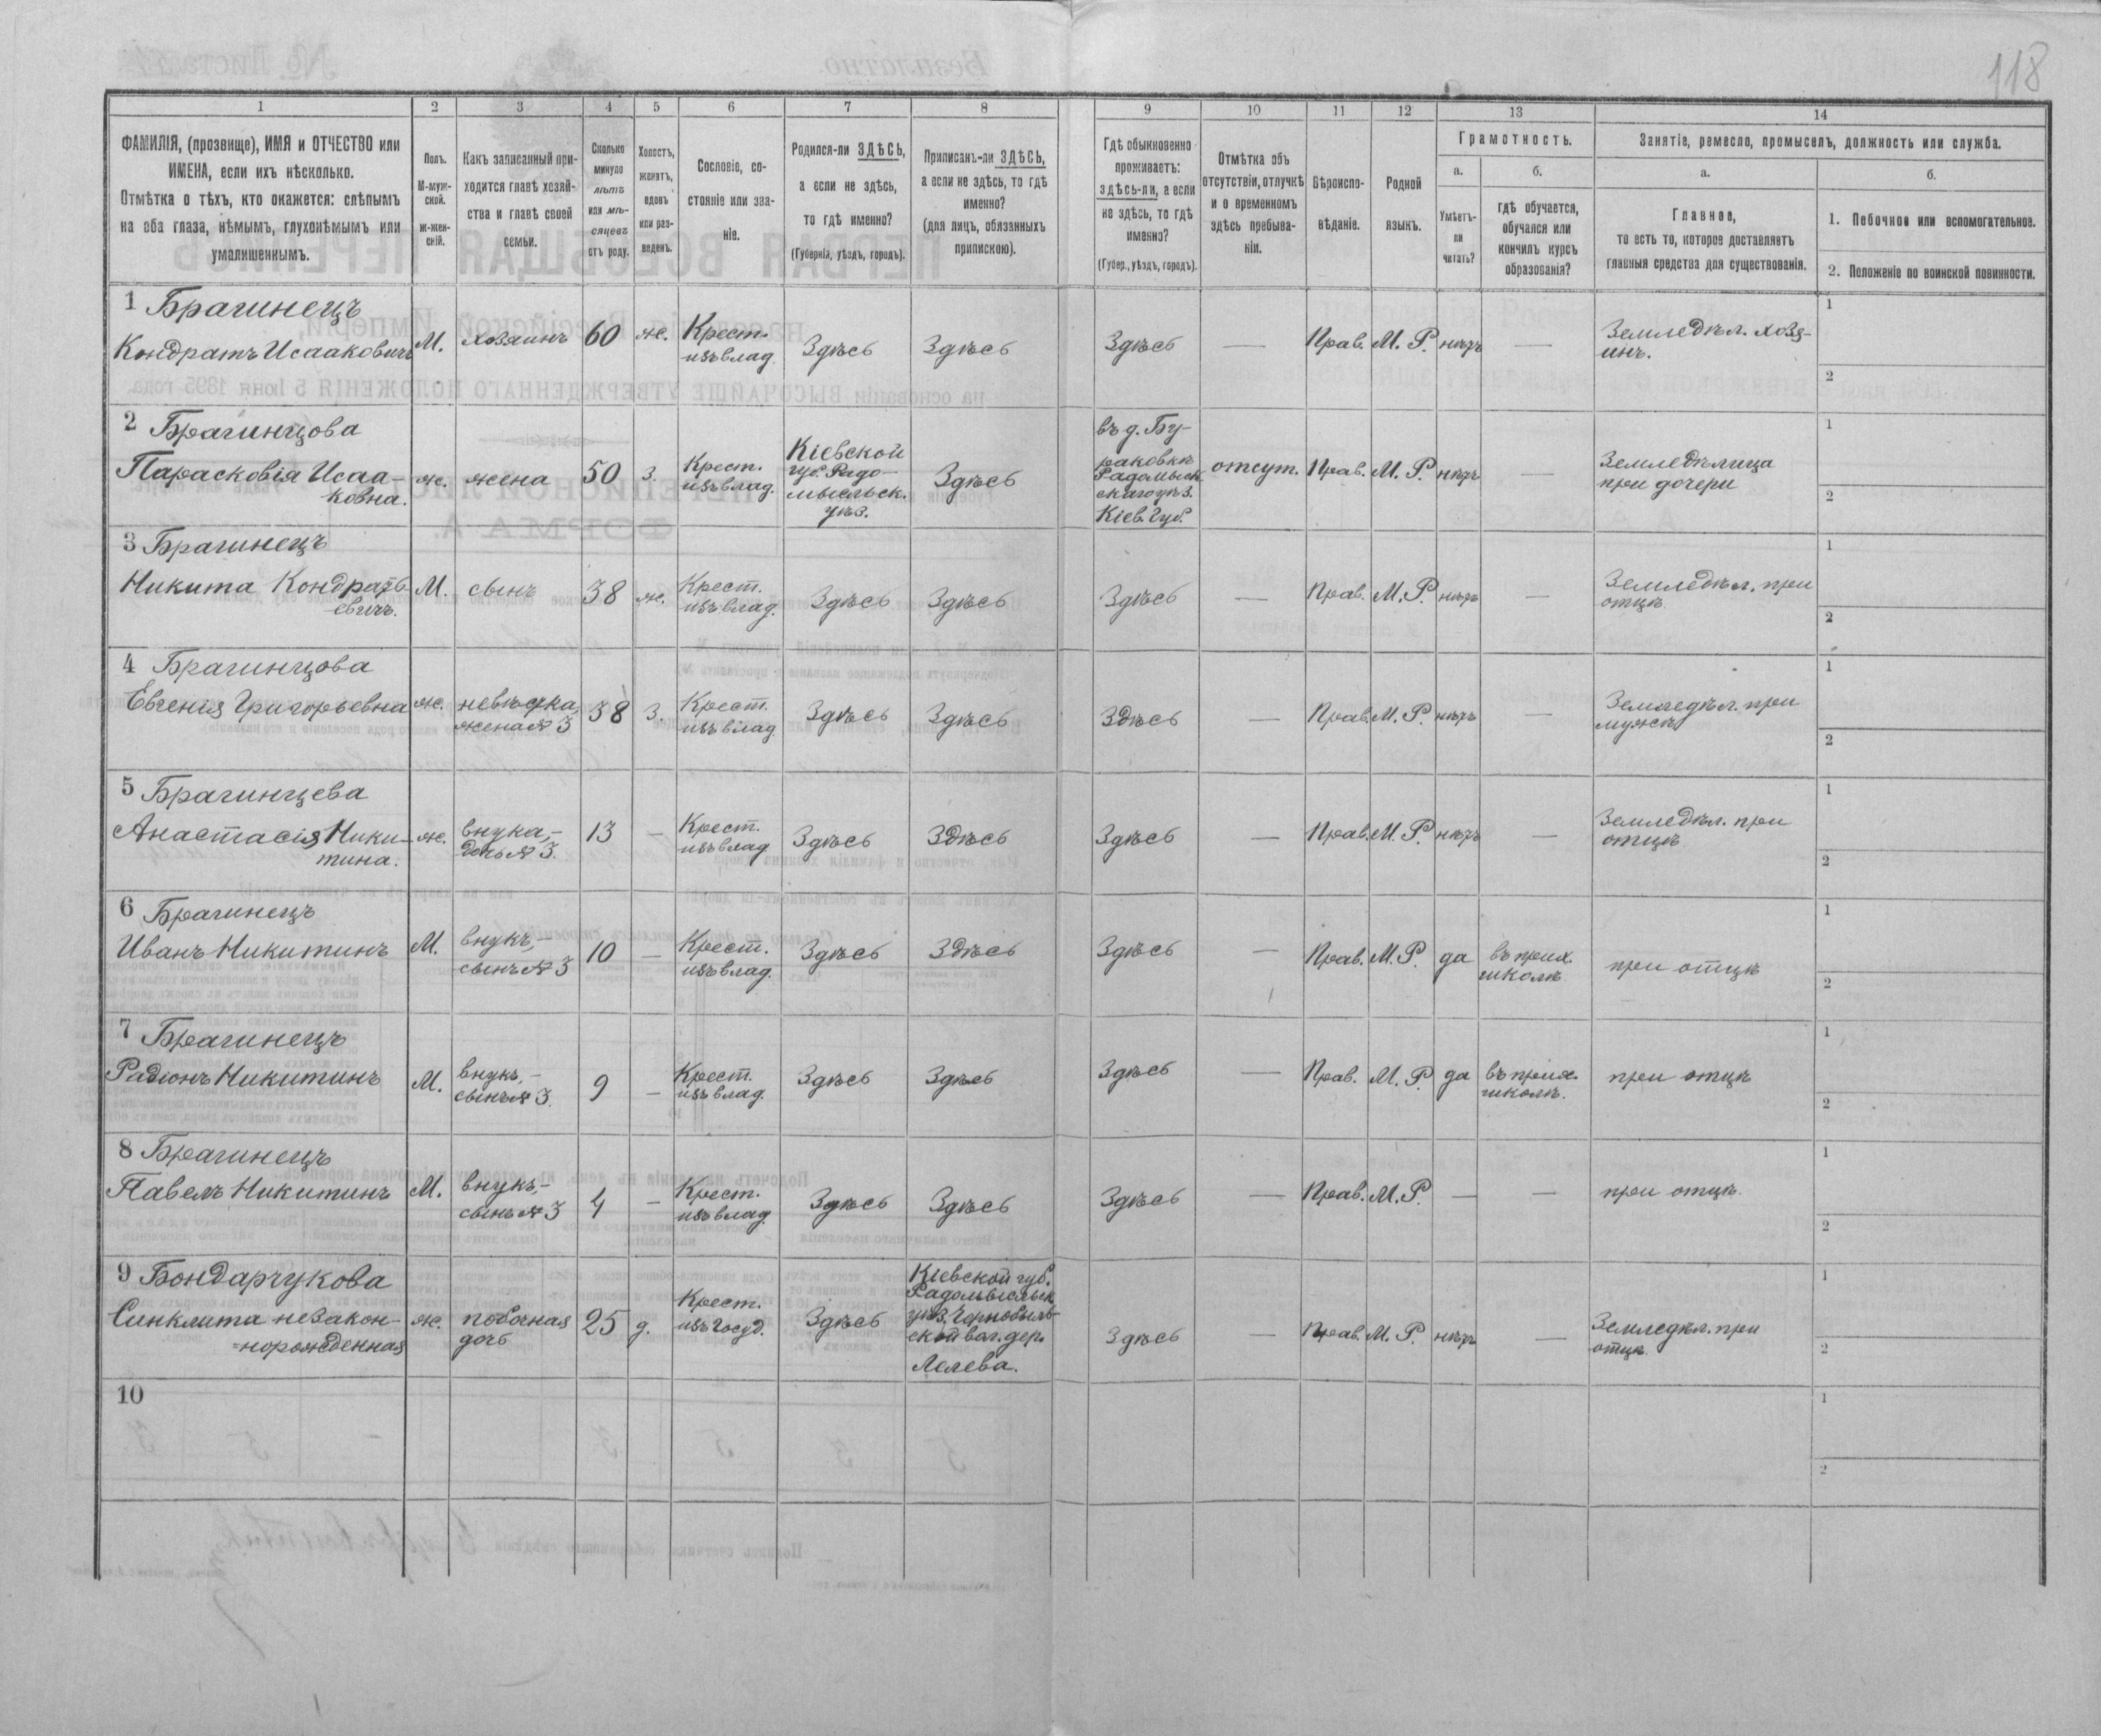 118
1 2 3 4 5 6 7 8 9 10 11 12 13 14
ФАМИЛІЯ, (прозвище), ИМЯ и ОТЧЕСТВО или
ИМЕНА, если ихъ нѣсколько.
Отмѣтка о тѣхъ, кто окажется: слѣпымъ
на оба глаза, нѣмымъ, глухонѣмымъ или
умалишеннымъ.
Полъ.
М-муж-
ской.
ж-жен-
скій.
Какъ записанный при-
ходится главѣ хозяй-
ства и главѣ своей
семьи.
Сколько
минуло
лѣтъ
или мѣ-
сяцевъ
отъ роду.
Холостъ,
женатъ,
вдовъ
или раз-
веденъ.
Сословіе, со-
стояніе или зва-
ніе.
Родился-ли ЗДѢСЬ,
а если не здѣсь,
то гдѣ именно?
(Губернія, уѣздъ, городъ).
Приписанъ-ли ЗДѢСЬ,
а если не здѣсь, то гдѣ
именно?
(для лицъ, обязанныхъ
припискою).
Гдѣ обыкновенно
проживаетъ:
здѣсь-ли, а если
не здѣсь, то гдѣ
именно?
(Губер., уѣздъ, городъ).
Отмѣтка объ
отсутствіи, отлучкѣ
и о временномъ
здѣсь пребыва-
ніи.
Вѣроиспо-
вѣданіе.
Родной
языкъ.
Грамотность.
а.
Умѣетъ-
ли
читать?
б.
гдѣ обучается,
обучался или
кончилъ курсъ
образованія?
Занятіе, ремесло, промыселъ, должность или служба.
а.
Главное,
то есть то, которое доставляетъ
главныя средства для существованія.
б.
1. Побочное или вспомогательное.
2. Положеніе по воинской повинности.
1 Брагинецъ
Кондратъ Исааковичъ
М.
хозяинъ
60
ж.
Крест.
изъ влад.
Здѣсь
Здѣсь
Здѣсь
—
Прав.
М. Р.
нѣтъ
—
Земледѣл. хозя-
инъ.
1
2
2 Брагинцова
Парасковія Исаа-
ковна.
ж.
жена
50
З.
Крест.
изъ влад.
Кіевской
губ. Радо-
мысльск.
уѣз.
Здѣсь
въ д. Бу-
раковкѣ
Радомысл
скаго уѣз.
Кіев. Губ.
отсут.
Прав.
М. Р.
нѣтъ
—
Земледѣлица
при дочери
1
2
3 Брагинецъ
Никита Кондрать-
евичъ.
М.
сынъ
38
ж.
Крест.
изъ влад.
Здѣсь
Здѣсь
Здѣсь
—
Прав.
М. Р.
нѣтъ
—
Земледѣл. при
отцѣ
1
2
4 Брагинцова
Евгенія Григорьевна
ж.
невѣстка,
жена № 3
38
З.
Крест.
изъ влад.
Здѣсь
Здѣсь
Здѣсь
—
Прав.
М. Р.
нѣтъ
—
Земледѣл. при
мужѣ
1
2
5 Брагинцева
Анастасія Ники-
тина.
ж.
внука,-
дочь № 3.
13
—
Крест.
изъ влад
Здѣсь
Здѣсь
Здѣсь
—
Прав.
М. Р.
нѣтъ
—
Земледѣл. при
отцѣ
1
2
6 Брагинецъ
Иванъ Никитинъ
М.
внукъ,-
сынъ № 3
10
—
Крест.
изъ влад.
Здѣсь
Здѣсь
Здѣсь
—
Прав.
М. Р.
да
въ прих.
школѣ
при отцѣ
1
2
7 Брагинецъ
Радіонъ Никитинъ
М.
внукъ,-
сынъ № 3.
9
—
Крест.
изъ влад.
Здѣсь
Здѣсь
Здѣсь
—
Прав.
М. Р.
да
въ прих.
школѣ.
при отцѣ
1
2
8 Брагинецъ
Павелъ Никитинъ
М.
внукъ,-
сынъ № 3
4
—
Крест.
изъ влад.
Здѣсь
Здѣсь
Здѣсь
—
Прав.
М. Р.
—
—
при отцѣ.
1
2
9 Бондарчукова
Синклита незакон-
норожденная
ж.
побочная
дочь
25
д.
Крест.
изъ Госуд.
Здѣсь
Кіевской губ.
Радомысльск
уѣз. Чорнобыль-
ской вол. дер.
Лелева.
Здѣсь
—
Прав.
М. Р.
нѣтъ
—
Земледѣл. при
отцѣ.
1
2
10
1
2